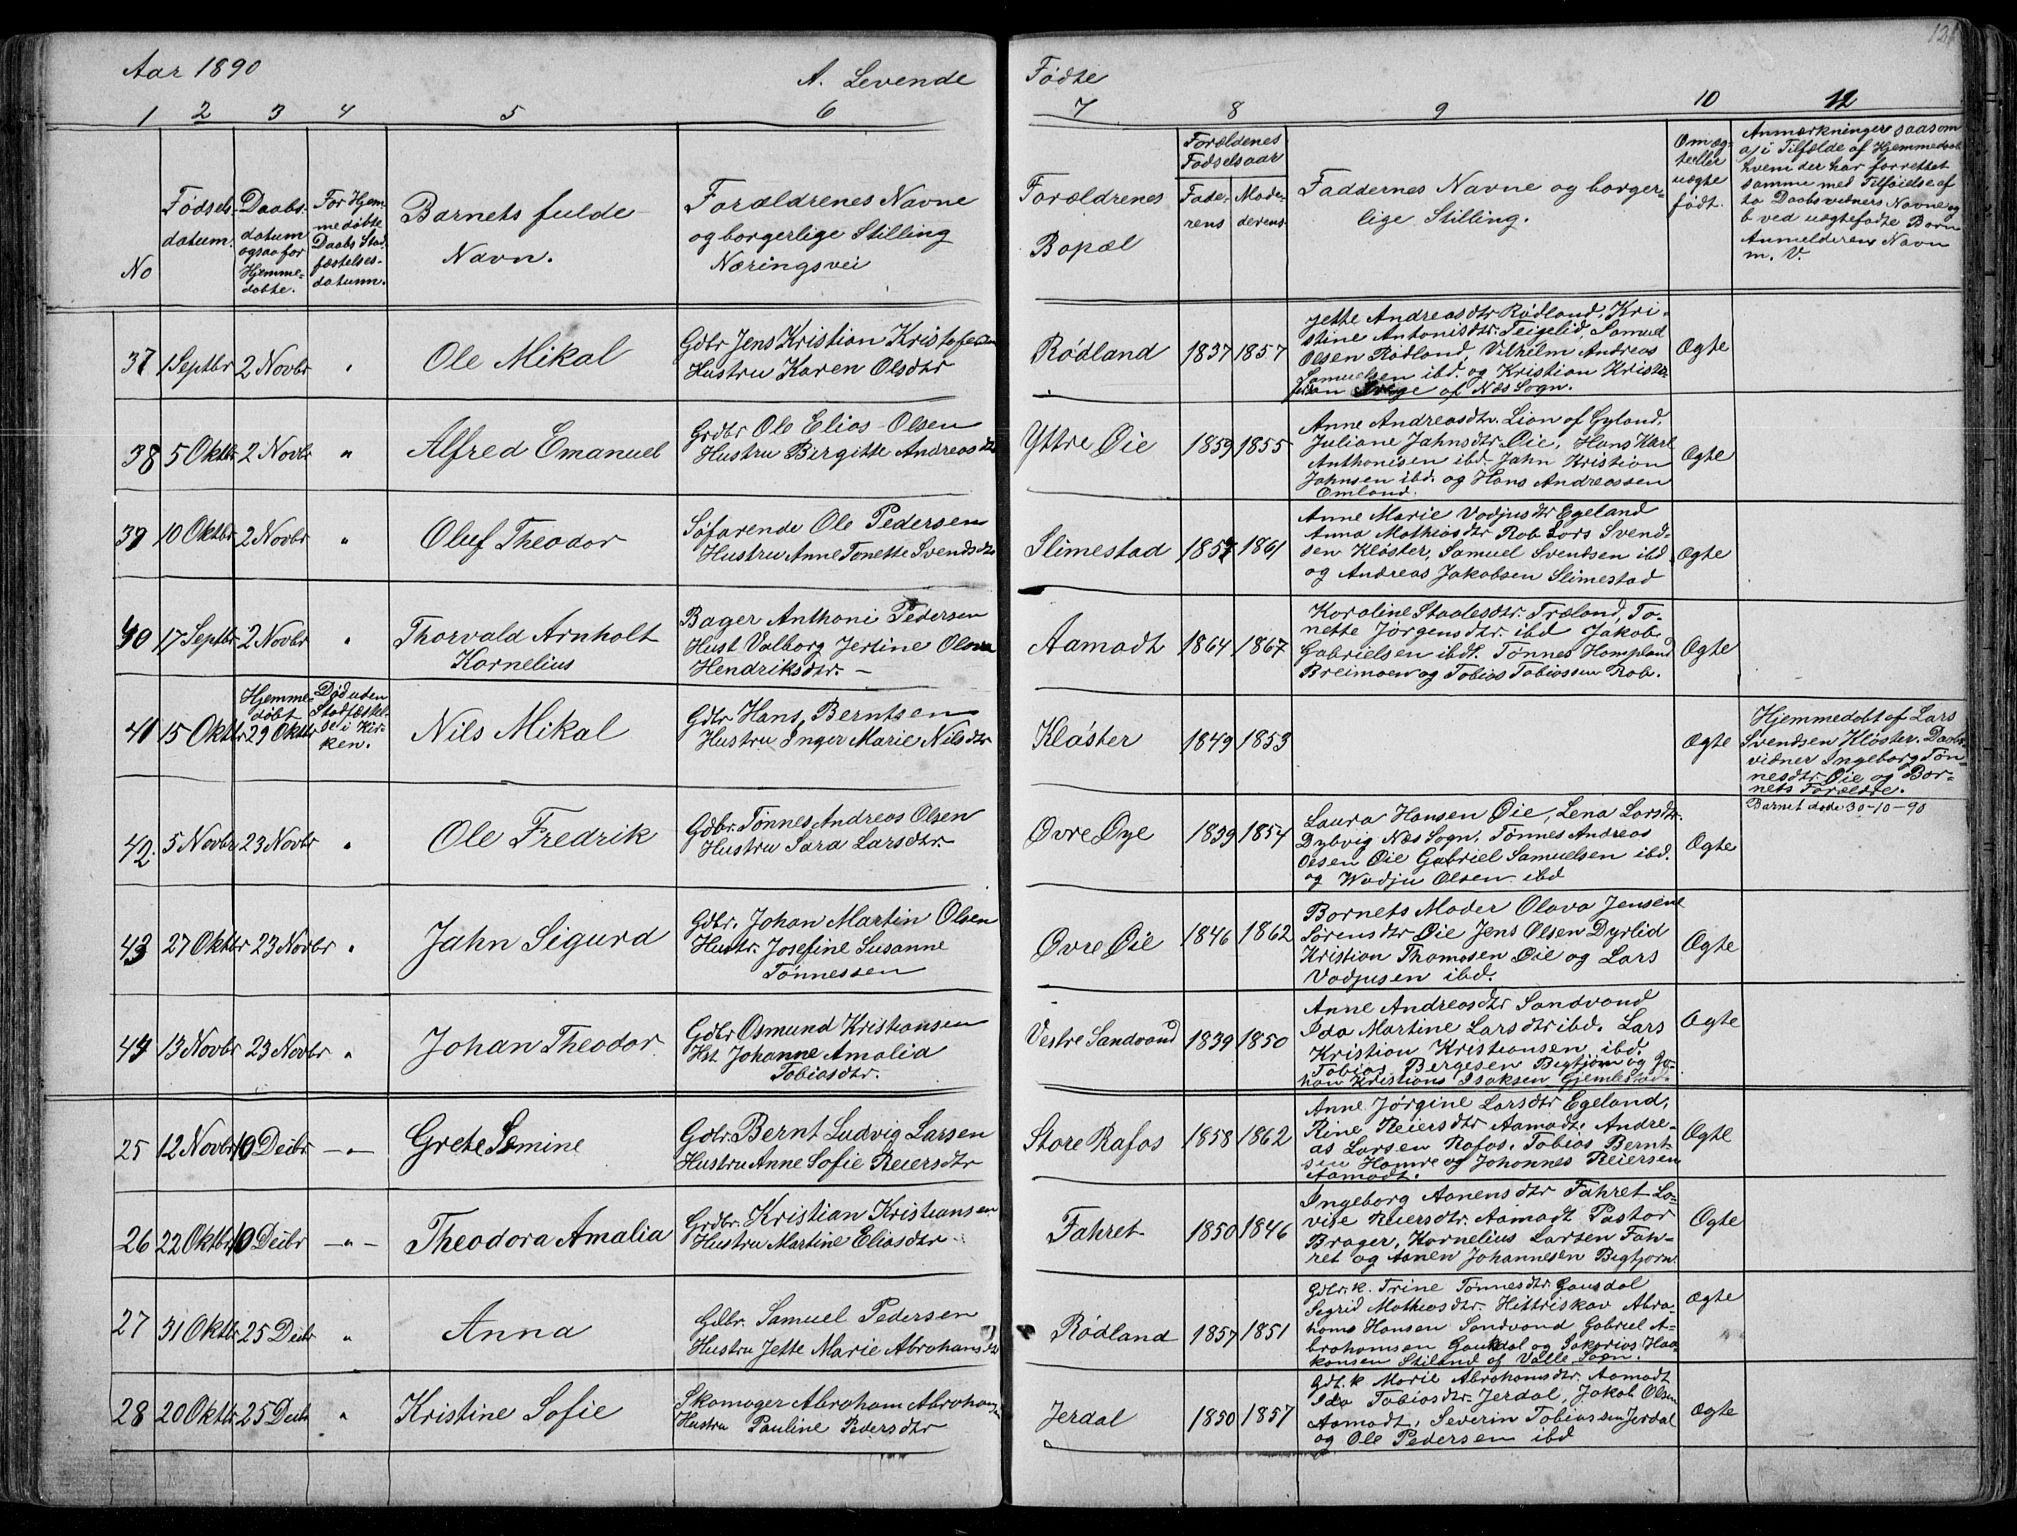 Aar 1890
A. Levende
Fødte
121
1 2 3 4 5 6
7 8 9 10 12
No
Fødsels-
datum.
Daabs-
datum
ogsaa for
Hjemme-
døbte.
For Hjem-
medøbte
Daabs Stad-
fæstelses-
datum.
Barnets fulde
Navn.
Forældrenes Navne
og borgerlige Stilling
Næringsvei
Forældrenes
Bopæl
Forældenes
Fødselsaar
Fade-
rens
Mode-
derens
Faddernes Navne og borger-
lige Stilling.
Om æg-
te eller
uægte
født.
Anmærkninger saasom
a, i Tilfælde af Hjemmedaab
hvem der har forrettet
samme med Tilføielse af
to Daabsvidners Navne og
b ved uægtefødte Børn
Anmelderens Navn
m. V.
37 1 Septbr 2 Novbr " Ole Mikal
Gdbr Jens Kristian Kristofersen
Hustru Karen Olsdtr
Rødland 1837 1857
Jette Andreasdtr Rødland, Kri-
stine Antonisdtr. Teigelid, Samuel
Olsen Rødland, Vilhelm Andreas
Samuelsen ibd. og Kristian Kristof-
fersen af Næs Sogn.
Ægte
38 5 Oktbr 2 Novbr " Alfred Emanuel
Grdbr Ole Elias Olsen
Hustru Birgitte Andreasdtr
Yttre Øie 1859 1855
Anne Andreasdtr. Lian af Gyland,
Juliane Jahnsdtr. Øie, Hans Karl
Anthonisen ibd. Jahn Kristian
Jahnsen ibd. og Hans Andreassen
Omland.
Ægte
39 10 Oktbr 2 Novbr " Oluf Theodor
Søfarende Ole Pedersen
Hustru Anne Tonette Svendsdtr
Slimestad 1857 1861
Anne Marie Vadjusdtr Egeland
Anna Mathiasdtr Rob Lars Svend-
sen Kløster, Samuel Svendsen ibd
og Andreas Jakobsen Slimestad
Ægte
40 17 Septbr 2 Novbr " Thorvald Arnholt
Kornelius
Bager Anthoni Pedersen
Hust Valborg Jertine Olava
Hendriksdtr. -
Aamodt 1864 1867
Karoline Staalesdtr. Træland, To-
nette Jørgensdtr. ibd Jakob
Gabrielsen ibdt. Tønnes Hompland
Breimoen og Tobias Tobiassen Rob.
Ægte
41 15 Oktbr
Hjemme-
døbt
29 Oktbr
Død uden
Stadfæstel-
se i Kir-
ken.
Nils Mikal
Gdbr Hans Berntsen
Hustru Inger Marie Nilsdtr
Kløster 1849 1853
Ægte
Hjemmedøbt af Lars
Svendsen Kløster. Daabs-
vidner Ingeborg Tøn-
nesdtr. Øie og Bar-
nets Forældre.
Barnet døde 30-10-90
42. 5 Novbr 23 Novbr " Ole Fredrik
Gdbr. Tønnes Andreas Olsen
Hustru Sara Larsdtr.
Øvre Øye 1839 1854
Laura Hansen Øie, Lena Larsdtr.
Dybvig Næs Sogn, Tønnes Andreas
Olsen Øie Gabriel Samuelsen ibd.
og Wadju Olsen ibd
Ægte
43 27 Oktbr 23 Novbr " Jahn Sigurd
Gdbr. Johan Martin Olsen
Hustr. Josefine Susanne
Tønnessen
Øvre Øie 1846 1862
Barnets Moder Olava Jensene
Sørensdtr Øie Jens Olsen Dyrlid
Kristian Thomasen Øie og Lars
Vadjusen ibd.
Ægte
44 13 Novbr 23 Novbr " Johan Theodor
Gdbr Osmund Kristiansen
Hst. Johanne Amalia
Tobiasdtr.
Vestre Sandvand 1839 1850
Anne Andreasdtr Sandvand
Ida Martine Larsdtr ibd. Lars
Kristian Kristiansen ibd.
Tobias Bergesen Bigtjørn og Jo-
han Kristians Isaksen Gjemlestad.
Ægte
25 12 Novbr 10 Decbr -"- Grete Semine
Gdbr. Bernt Ludvig Larsen
Hustru Anne Sofie Reiersdtr
Store Rafos 1858 1862
Anne Jørgine Larsdtr Egeland,
Rine Reiersdtr Aamodt. Andre-
as Larsen Rafos. Tobias Bernt-
sen Hamre og Johannes Reiersen
Aamodt.
Ægte
26 22 Oktbr 10 Decbr -"- Theodora Amalia
Grdbr. Kristian Kristiansen
Hustru Martine Eliasdtr
Fahret 1850 1846
Ingeborg Aanensdtr Fahret Lo-
vise Reiersdtr. Aamodt Pastor
Brager, Kornelius Larsen Fah-
ret og Aanen Johannesen Bigtjørn
Ægte
27 31 Oktbr 25 Decbr " Anna
Gdbr. Samuel Pedersen
Hustru Jette Marie Abrahamsdtr
Rødland 1857 1851
Gdbr. k. Trine Tønnesdtr. Gausdal
Segrid Mathiasdtr. Hittriskav Abra-
hams Hansen Sandvand Gabriel A-
brahamsen Gausdal og Sakarias Haa-
konsen Stiland af Valle Sogn.
Ægte
28 20 Oktbr 25 Decbr " Kristine Sofie
Skomager Abraham Abrahamsen
Hustru Pauline Pedersdtr
Jerdal 1850 1857
Gdb. k Marie Abrahamsdtr. Aamodt
Ida Tobiasdtr. Jerdal, Jakob Olsen
Aamodt, Severin Tobiassen Jerdal
og Ole Pedersen ibd
Ægte